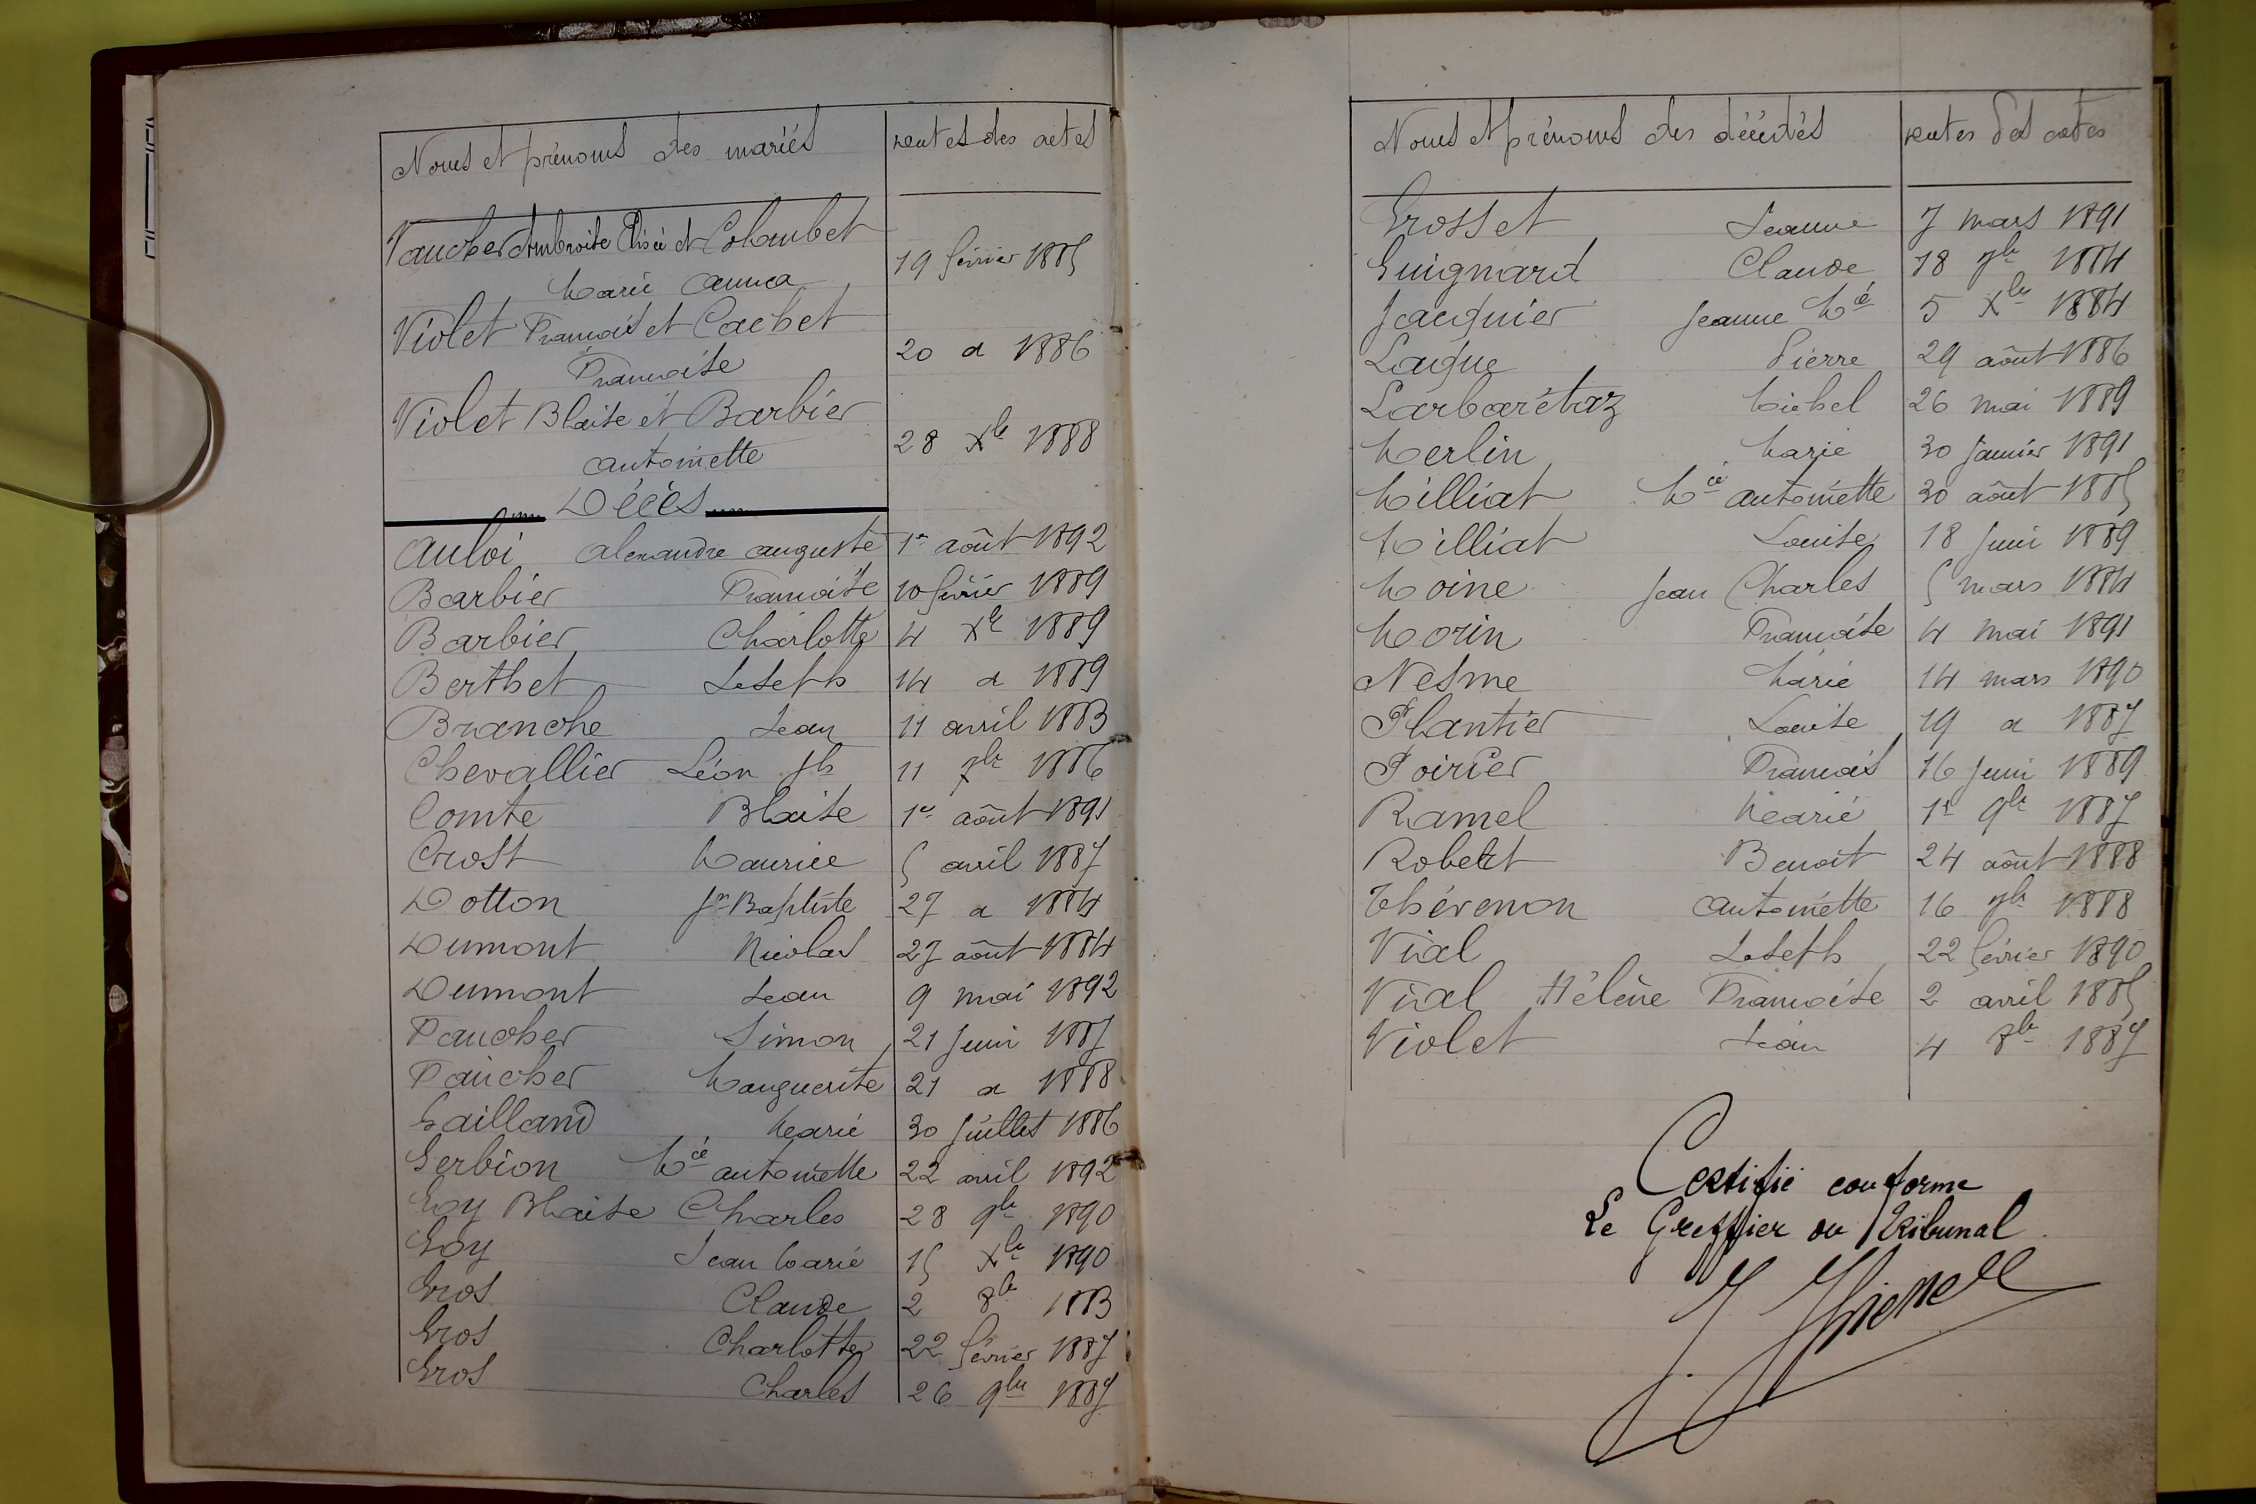 Noms et prénoms des mariés dates des actes
Vaucher Ambroise Elisée et Colombet
Marie Anna 19 février 1885
Violet François et Cachet
Françoise 20 d 1886
Violet Blaise et Barbier
Antoinette 28 Xbre 1888
Décès
Auloi Alexandre Auguste 1er août 1892
Barbier Françoise 10 février 1889
Barbier Charlotte 4 Xbre 1889
Berthet Joseph 14 d 1889
Branche Jean 11 avril 1883
Chevallier Léon Jh 11 7bre 1886
Comte Blaise 1er août 1891
Crost Maurice 5 avril 1887
Dotton Jn Baptiste 27 d 1884
Dumont Nicolas 27 août 1884
Dumont Jean 9 mai 1892
Faucher Simon 21 juin 1887
Faucher Marguerite 21 d 1888
Gailland Marie 30 juillet 1886
Gerbion Mie Antoinette 22 avril 1892
Goy Blaise Charles 28 9bre 1890
Goy Jean Marie 15 Xbre 1890
Gros Claude 2 8bre 1883
Gros Charlotte 22 février 1887
Gros Charles 26 9bre 1887
Noms et prénoms des décédés dates des actes
Grosset Jeanne 7 mars 1891
Guignard Claude 18 7bre 1884
Jacquier Jeanne Mie 5 Xbre 1884
Laigue Pierre 29 août 1886
Larbarétaz Michel 26 mai 1889
Merlin Marie 30 janvier 1891
Milliat Mie Antoinette 30 août 1885
Milliat Louise 18 juin 1889
Moine Jean Charles 5 mars 1884
Morin Françoise 4 mai 1891
Nesme Marie 14 mars 1890
Plantier Louise 19 d 1887
Poirier François 16 juin 1889
Ramel Marie 1er 9bre 1887
Robert Benoit 24 août 1888
Thévenon Antoinette 16 7bre 1888
Vial Joseph 22 février 1890
Vial Hélène Françoise 2 avril 1885
Violet Jean 4 8bre 1887
Certifié conforme
Le Greffier du Tribunal